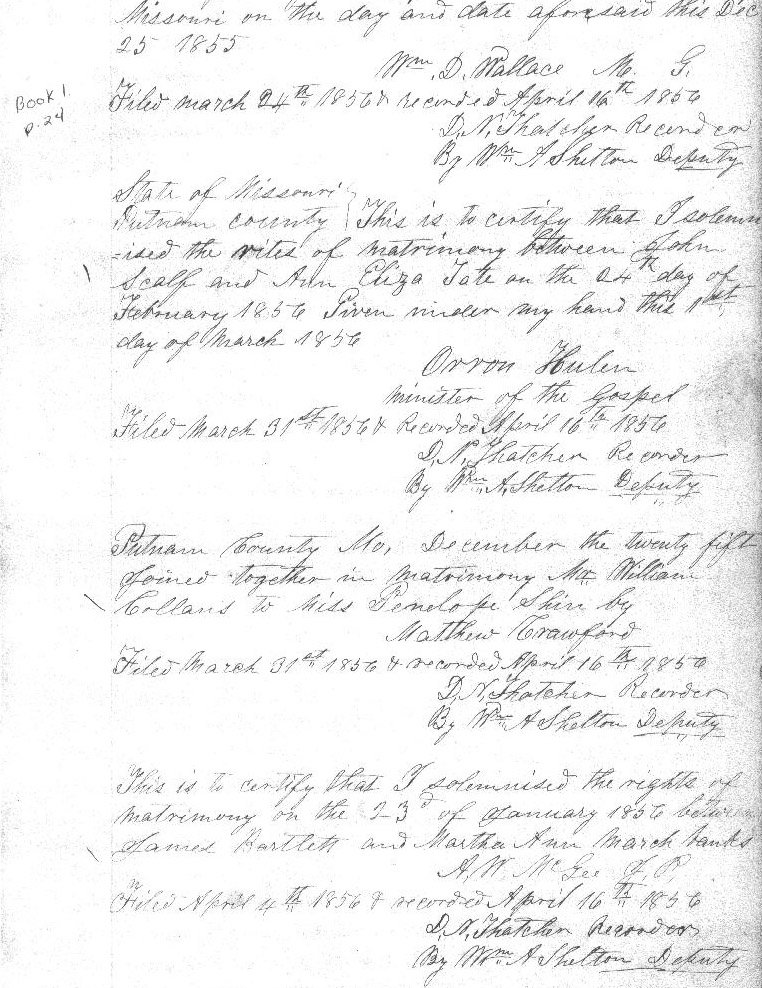 Missouri on the day and date aforesaid this Dec
25 1855
Wm. D. Wallace M. G.
Book 1.
p. 24
Filed march 24th 1856 & recorded April 16th 1856
D. N. Thatcher Recorder
By Wm A Shelton Deputy
State of Missouri
Putnam county } This is to certify that I solemn
=ised the rites of matrimony between John
Scalf and Ann Eliza Tate on the 24th day of
February 1856 Given under my hand this 1st
day of March 1856
Orron Hulen
minister of the Gospel
Filed March 31st 1856 & Recorded April 16th 1856
D. N. Thatcher Recorder
By Wm A. Shelton Deputy
Putnam County Mo, December the twenty fift
Joined together in matrimony Mr William
Collans to Miss Penelope Shin by
Matthew Crawford
Filed March 31st 1856 & recorded April 16th 1856
D. N. Thatcher Recorder
By Wm A Shelton Deputy
This is to certify that I solemnised the rights of
matrimony on the 23d of January 1856 between
James Bartlett and Martha Ann March banks
A. W. McGee J. P.
Filed April 4th 1856 & recorded April 16th 1856
D. N. Thatcher Recorder
By Wm A Shelton Deputy